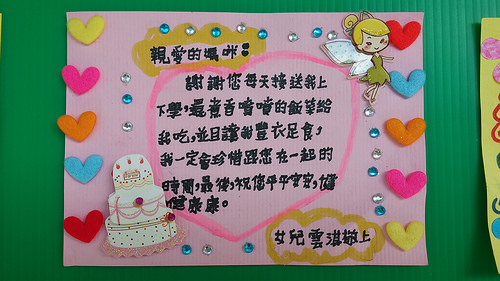 親愛的媽咪：
謝謝您每天接送我上
下學，還煮香噴噴的飯菜給
我吃，並且讓我豐衣足食，
我一定會珍惜跟您在一起的
時間，最後，祝您平平安安，健
健康康。
女兒雲淇敬上